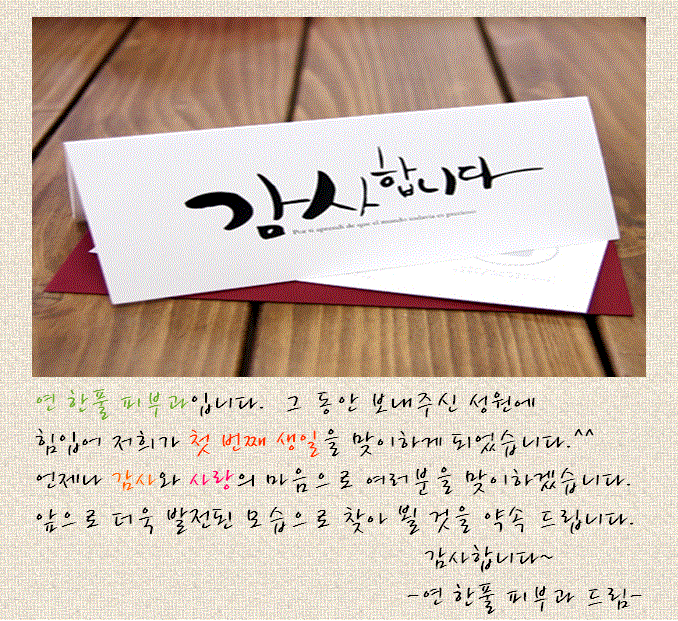 감사합니다
Por ti aprendi de que el mundo todavia es precioso
연 한풀 피부과입니다. 그 동안 보내주신 성원에
힘입어 저희가 첫 번째 생일을 맞이하게 되었습니다.^^
언제나 감사와 사랑의 마음으로 여러분을 맞이하겠습니다.
앞으로 더욱 발전된 모습으로 찾아 뵐 것을 약속 드립니다.
감사합니다~
-연 한풀 피부과 드림-